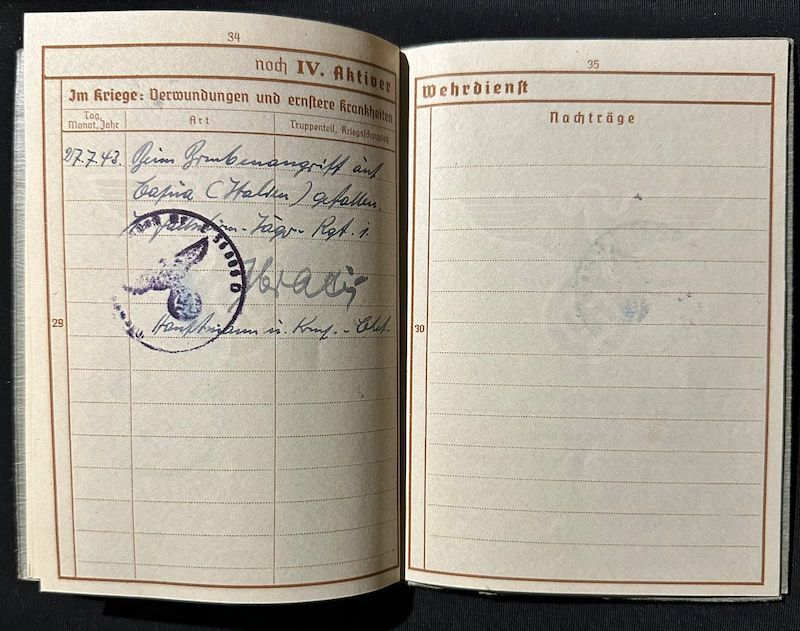 34
noch IV. Aktiver
Im Kriege: Verwundungen und ernstere Krankheiten
Tag, Monat, Jahr
Art
Truppenteil, Kriegsschauplatz
27.7.43. Beim Bombenangriff auf
Capua (Italien) gefallen.
Fallschirm-Jäger-Rgt. 1.
Hauptmann u. Kmp.-Chef.
29
35
Wehrdienst
Nachträge
30